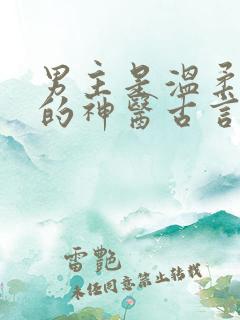 男主是溫柔
的神醫古言
雷艷
未经同意禁止转载